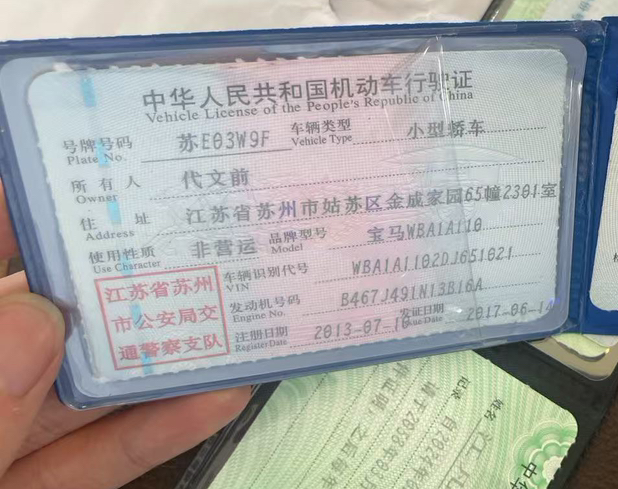 中华人民共和国机动车行驶证
Vehicle License of the People's Republic of China
号牌号码 苏E03W9F 车辆类型 小型轿车
Plate No. Vehicle Type
所有人 代文前
Owner
住址 江苏省苏州市姑苏区金成家园65幢2301室
Address
使用性质 非营运 品牌型号 宝马WBA1A110
Use Character Model
江苏省苏州
市公安局交
通警察支队
车辆识别代号 WBA1A1102DJ651021
VIN
发动机号码 B467J491N13B16A
Engine No.
注册日期 2013-07-10 发证日期 2017-06-1
Register Date Issue Date
姓名
记录